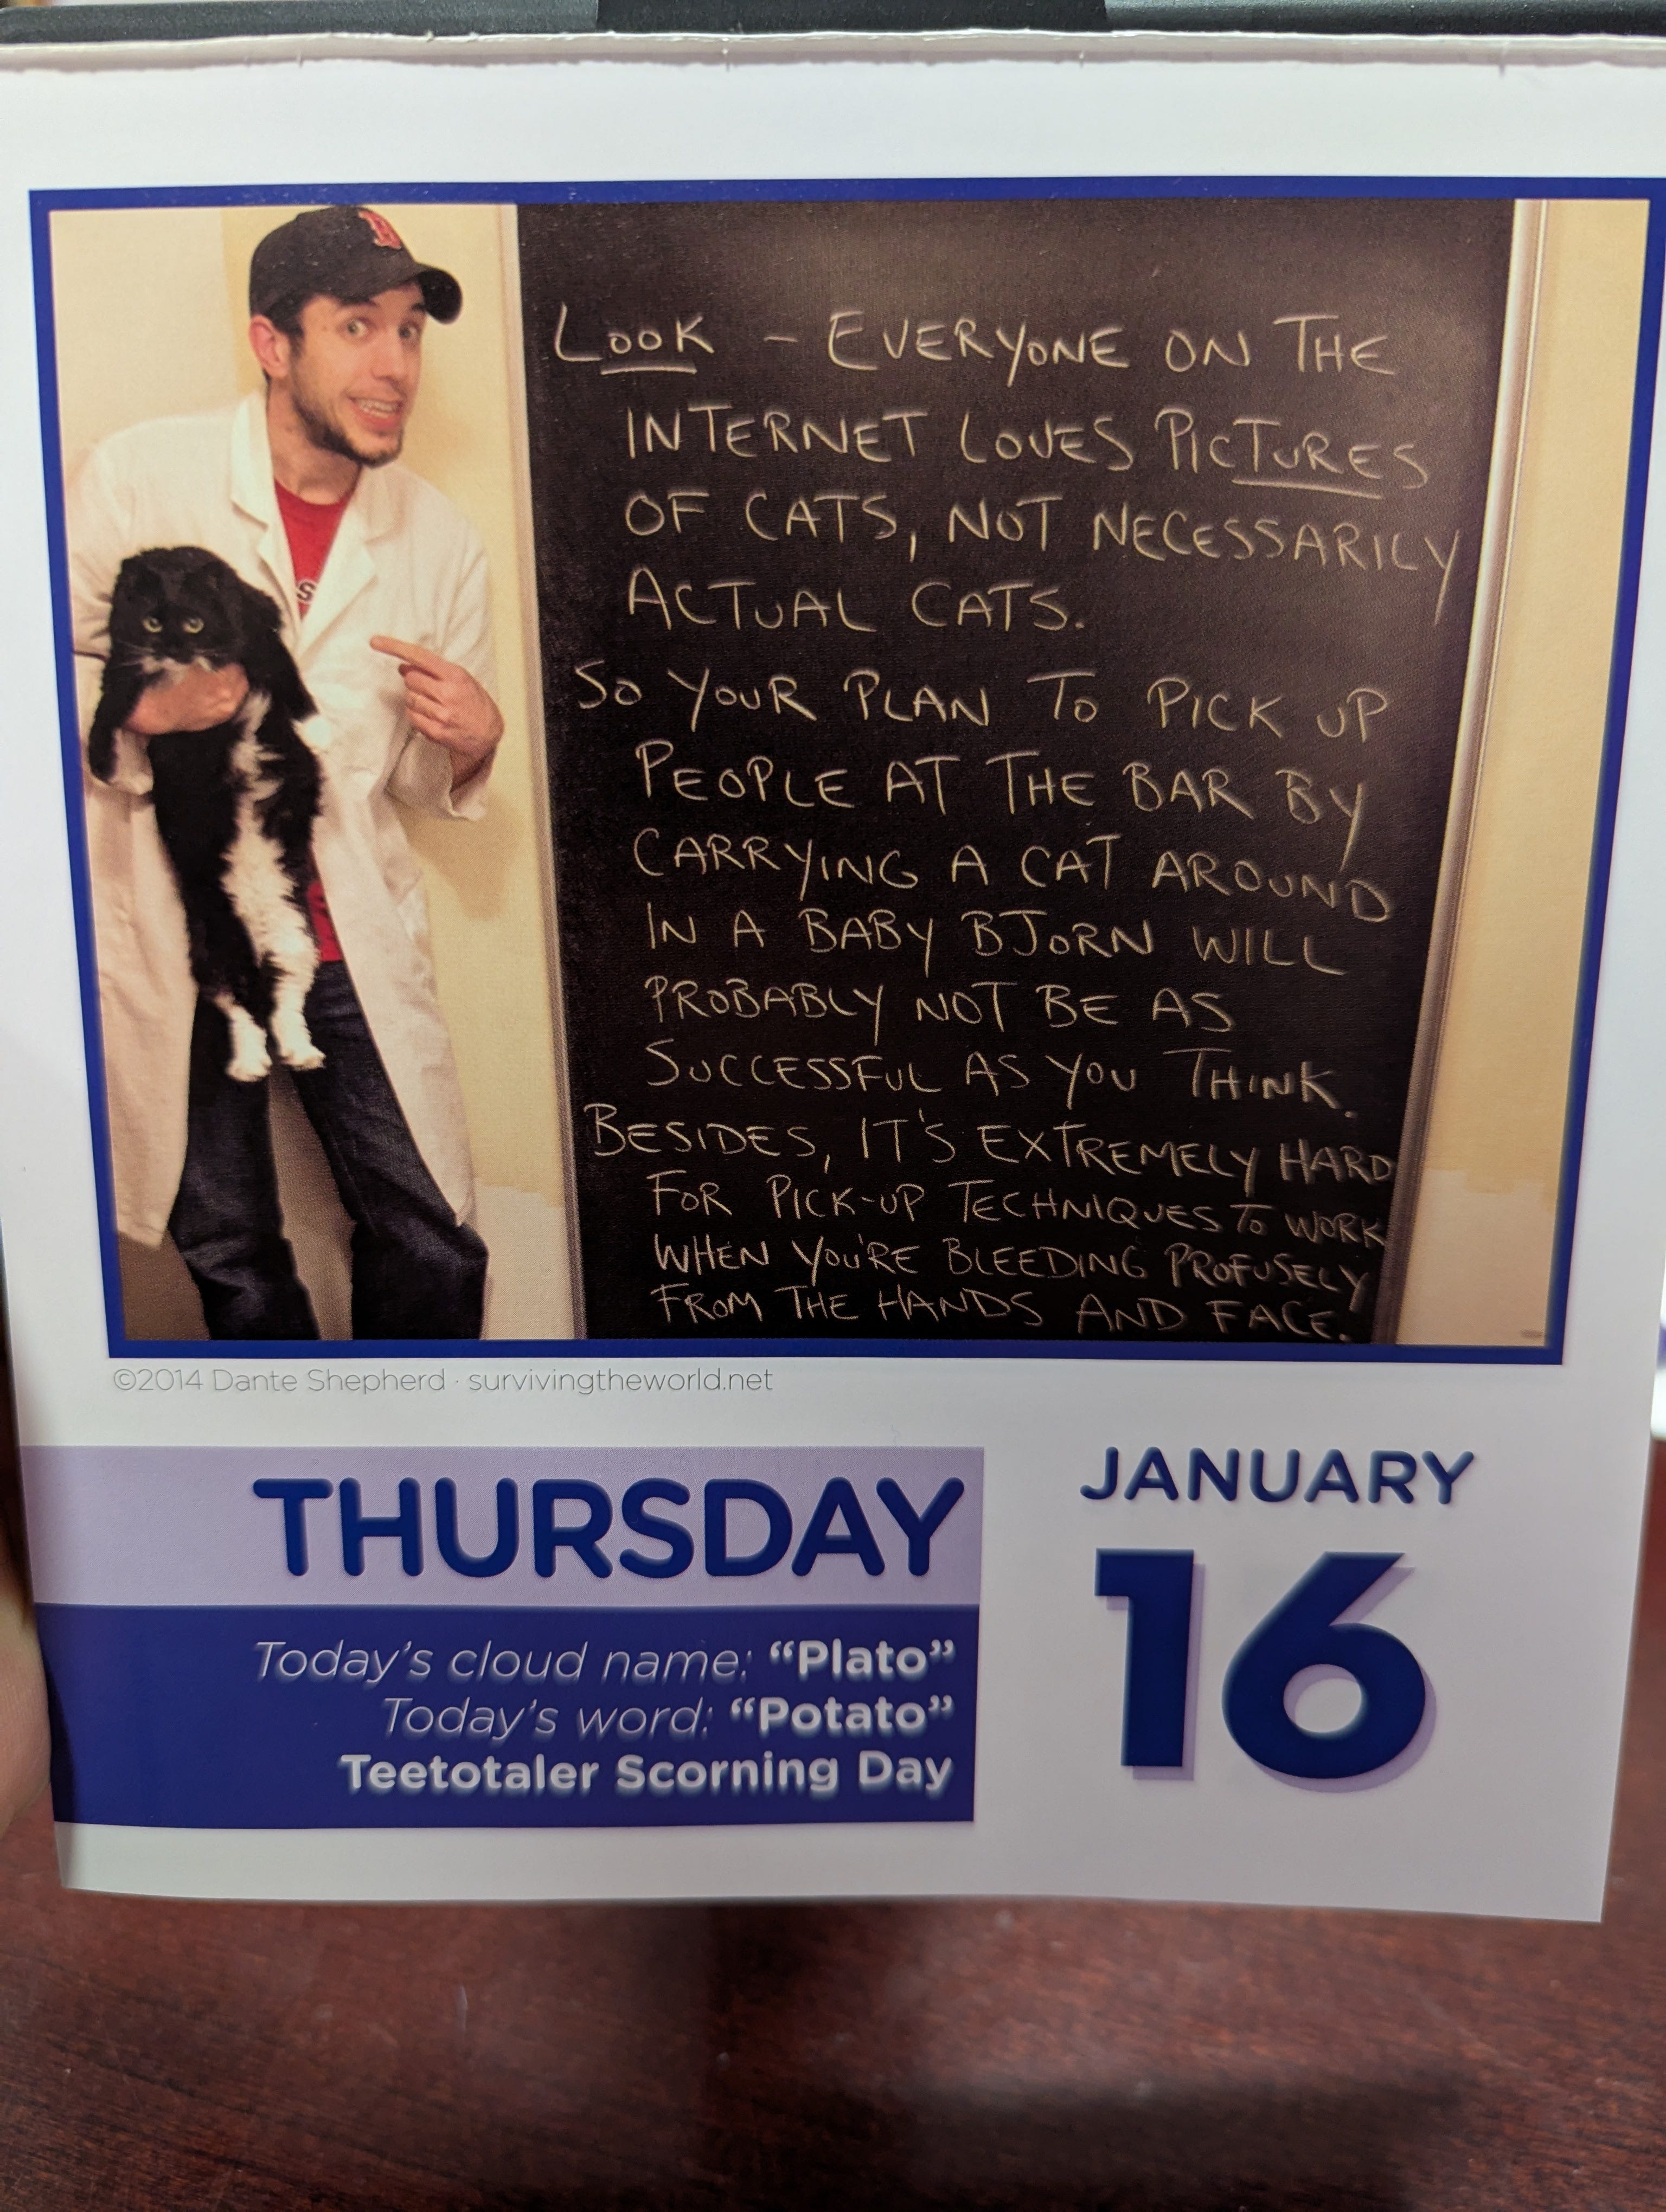 B
S
LOOK - EVERYONE ON THE
INTERNET LOVES PICTURES
OF CATS, NOT NECESSARILY
ACTUAL CATS.
SO YOUR PLAN TO PICK UP
PEOPLE AT THE BAR BY
CARRYING A CAT AROUND
IN A BABY BJORN WILL
PROBABLY NOT BE AS
SUCCESSFUL AS YOU THINK.
BESIDES, IT'S EXTREMELY HARD
FOR PICK-UP TECHNIQUES TO WORK
WHEN YOU'RE BLEEDING PROFUSELY
FROM THE HANDS AND FACE.
©2014 Dante Shepherd · survivingtheworld.net
THURSDAY
Today's cloud name: “Plato”
Today's word: “Potato”
Teetotaler Scorning Day
JANUARY
16